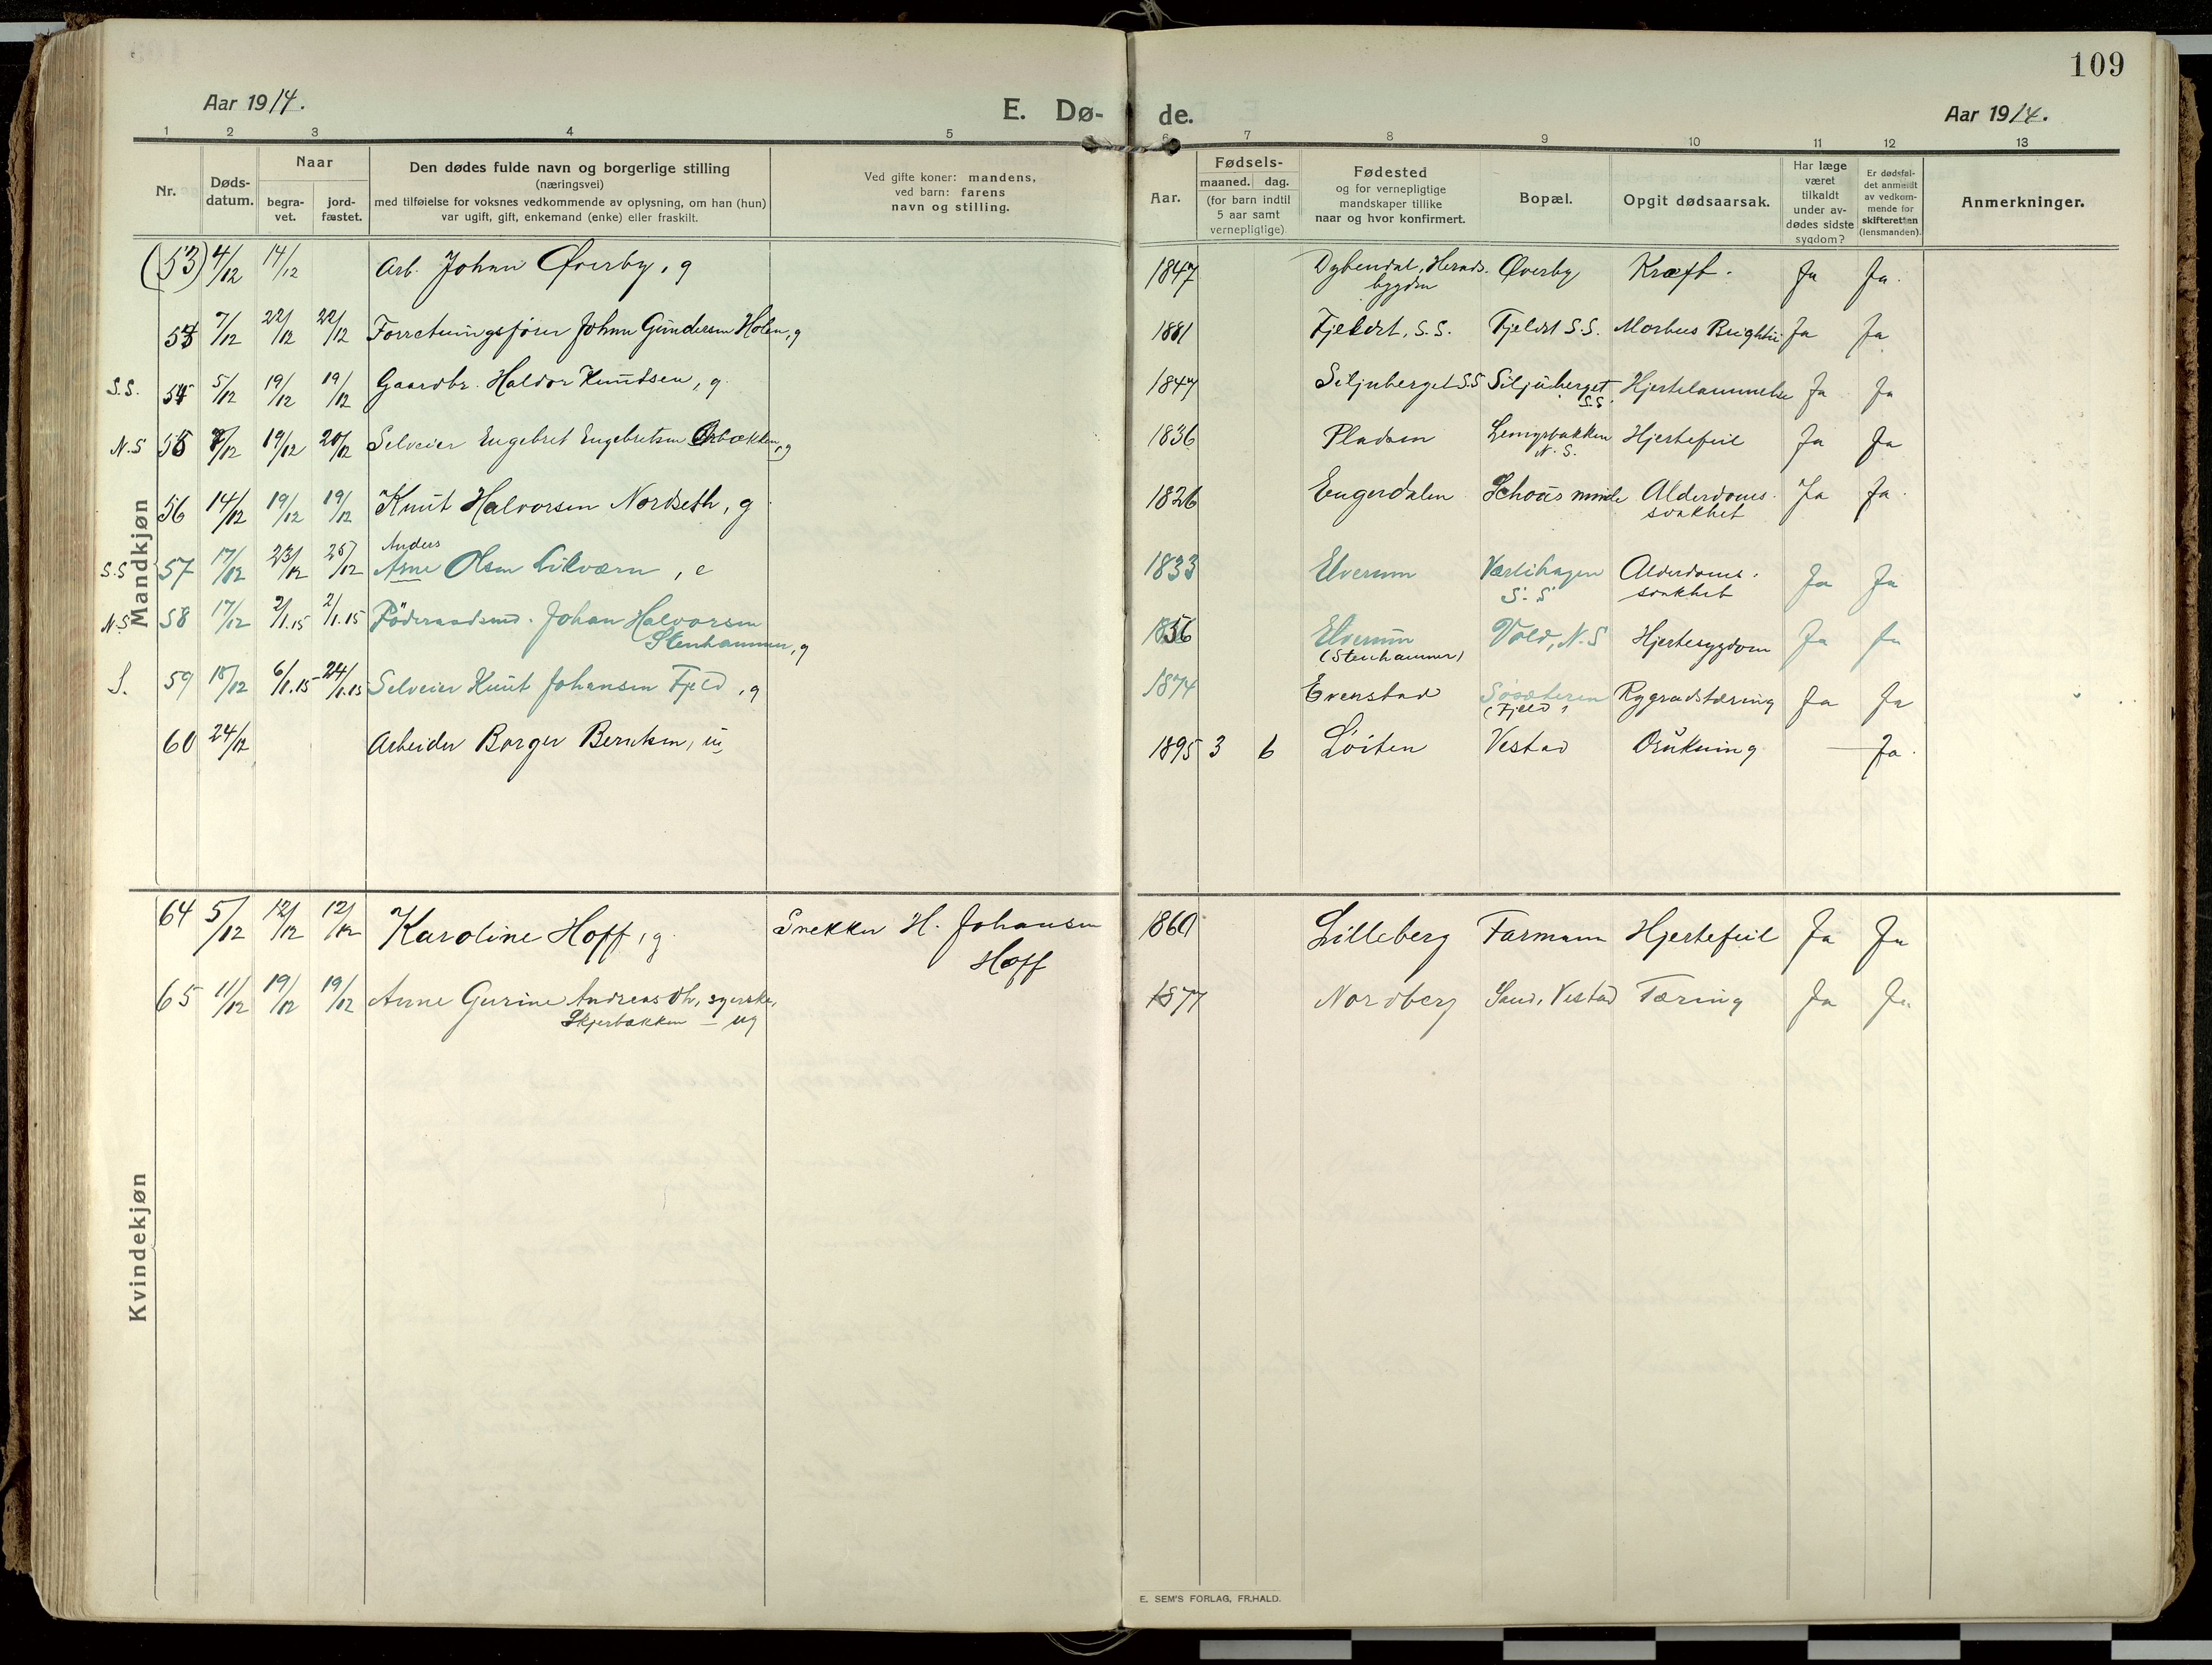 109
Aar 1914.
E. Dø-
de.
Aar 1914.
1 2 3 4 5 6 7 8 9 10 11 12 13
Nr.
Døds-
datum.
Naar
begra-
vet.
jord-
fæstet.
Den dødes fulde navn og borgerlige stilling
(næringsvei)
med tilføielse for voksnes vedkommende av oplysning, om han (hun)
var ugift, gift, enkemand (enke) eller fraskilt.
Ved gifte koner: mandens,
ved barn: farens
navn og stilling.
Aar.
Fødsels-
maaned. dag.
(for barn indtil
5 aar samt
vernepligtige)
Fødested
og for vernepligtige
mandskaper tillike
naar og hvor konfirmert.
Bopæl.
Opgit dødsaarsak.
Har læge
været
tilkaldt
under av-
dødes sidste
sygdom?
Er dødsfal-
det anmeldt
av vedkom-
mende for
skifteretten
(lensmanden).
Anmerkninger.
Mandkjøn
(53) 4/12 14/12 Arb. Johan Øverby, g 1847 Dybendal, Hernds. Øverby Kræft. Ja Ja.
bygden
54 7/12 22/12 22/12 Forretningsfører Johan Gundersen Holen, g 1881 Fjeldst, S.S. Fjeldst S.S. Morbus Brightii Ja Ja
S.S. 54 5/12 19/12 19/12 Gaardbr. Haldor Knudsen, g. 1847 Siljuberget S.S Siljuberget Hjertelammelse Ja Ja
S.S.
N.S 55 7/12 19/12 20/12 Selveier Engebret Engebretsen, g 1836 Pladsen Hjertefeil Ja Ja
N.S.
56 14/12 19/12 19/12 Knut Halvorsen Nordseth, g 1826 Engerdalen Schousminde Alderdoms- Ja Ja.
svakhet
Anders
S.S 57 17/12 23/12 25/12 Arne Olsen Lilværn, e 1833 Elverum Værlihagen Alderdoms- Ja Ja
S.S svakhet
N.S 58 17/12 2/1.15 2/1.15 Föderaadsmd. Johan Halvorsen 1856 Elverum Vold, N.S Hjertesygdom Ja Ja
Stenhammer, g (Stenhammer)
S. 59 18/12 6/1.15 24/1.15 Selveier Knut Johansen Fjeld, g 1874 Evenstad Søsæteren Rygradstæring Ja Ja
(Fjeld)
60 24/12 Arbeider Borger Berntsen, u 1895 3 6 Löiten Vestad Drukning — Ja.
Kvindekjøn
64 5/12 12/12 12/12 Karoline Hoff, g. Snekker H. Johansen 1860 Lilleberg Farmann Hjertefeil Ja Ja
Hoff
65 11/12 19/12 19/12 Anne Gurine Andreasdtr, syerske, 1877 Nordberg Sand, Vestad Tæring Ja Ja
Skjerbakken – ug
E. SEM'S FORLAG, FR.HALD.